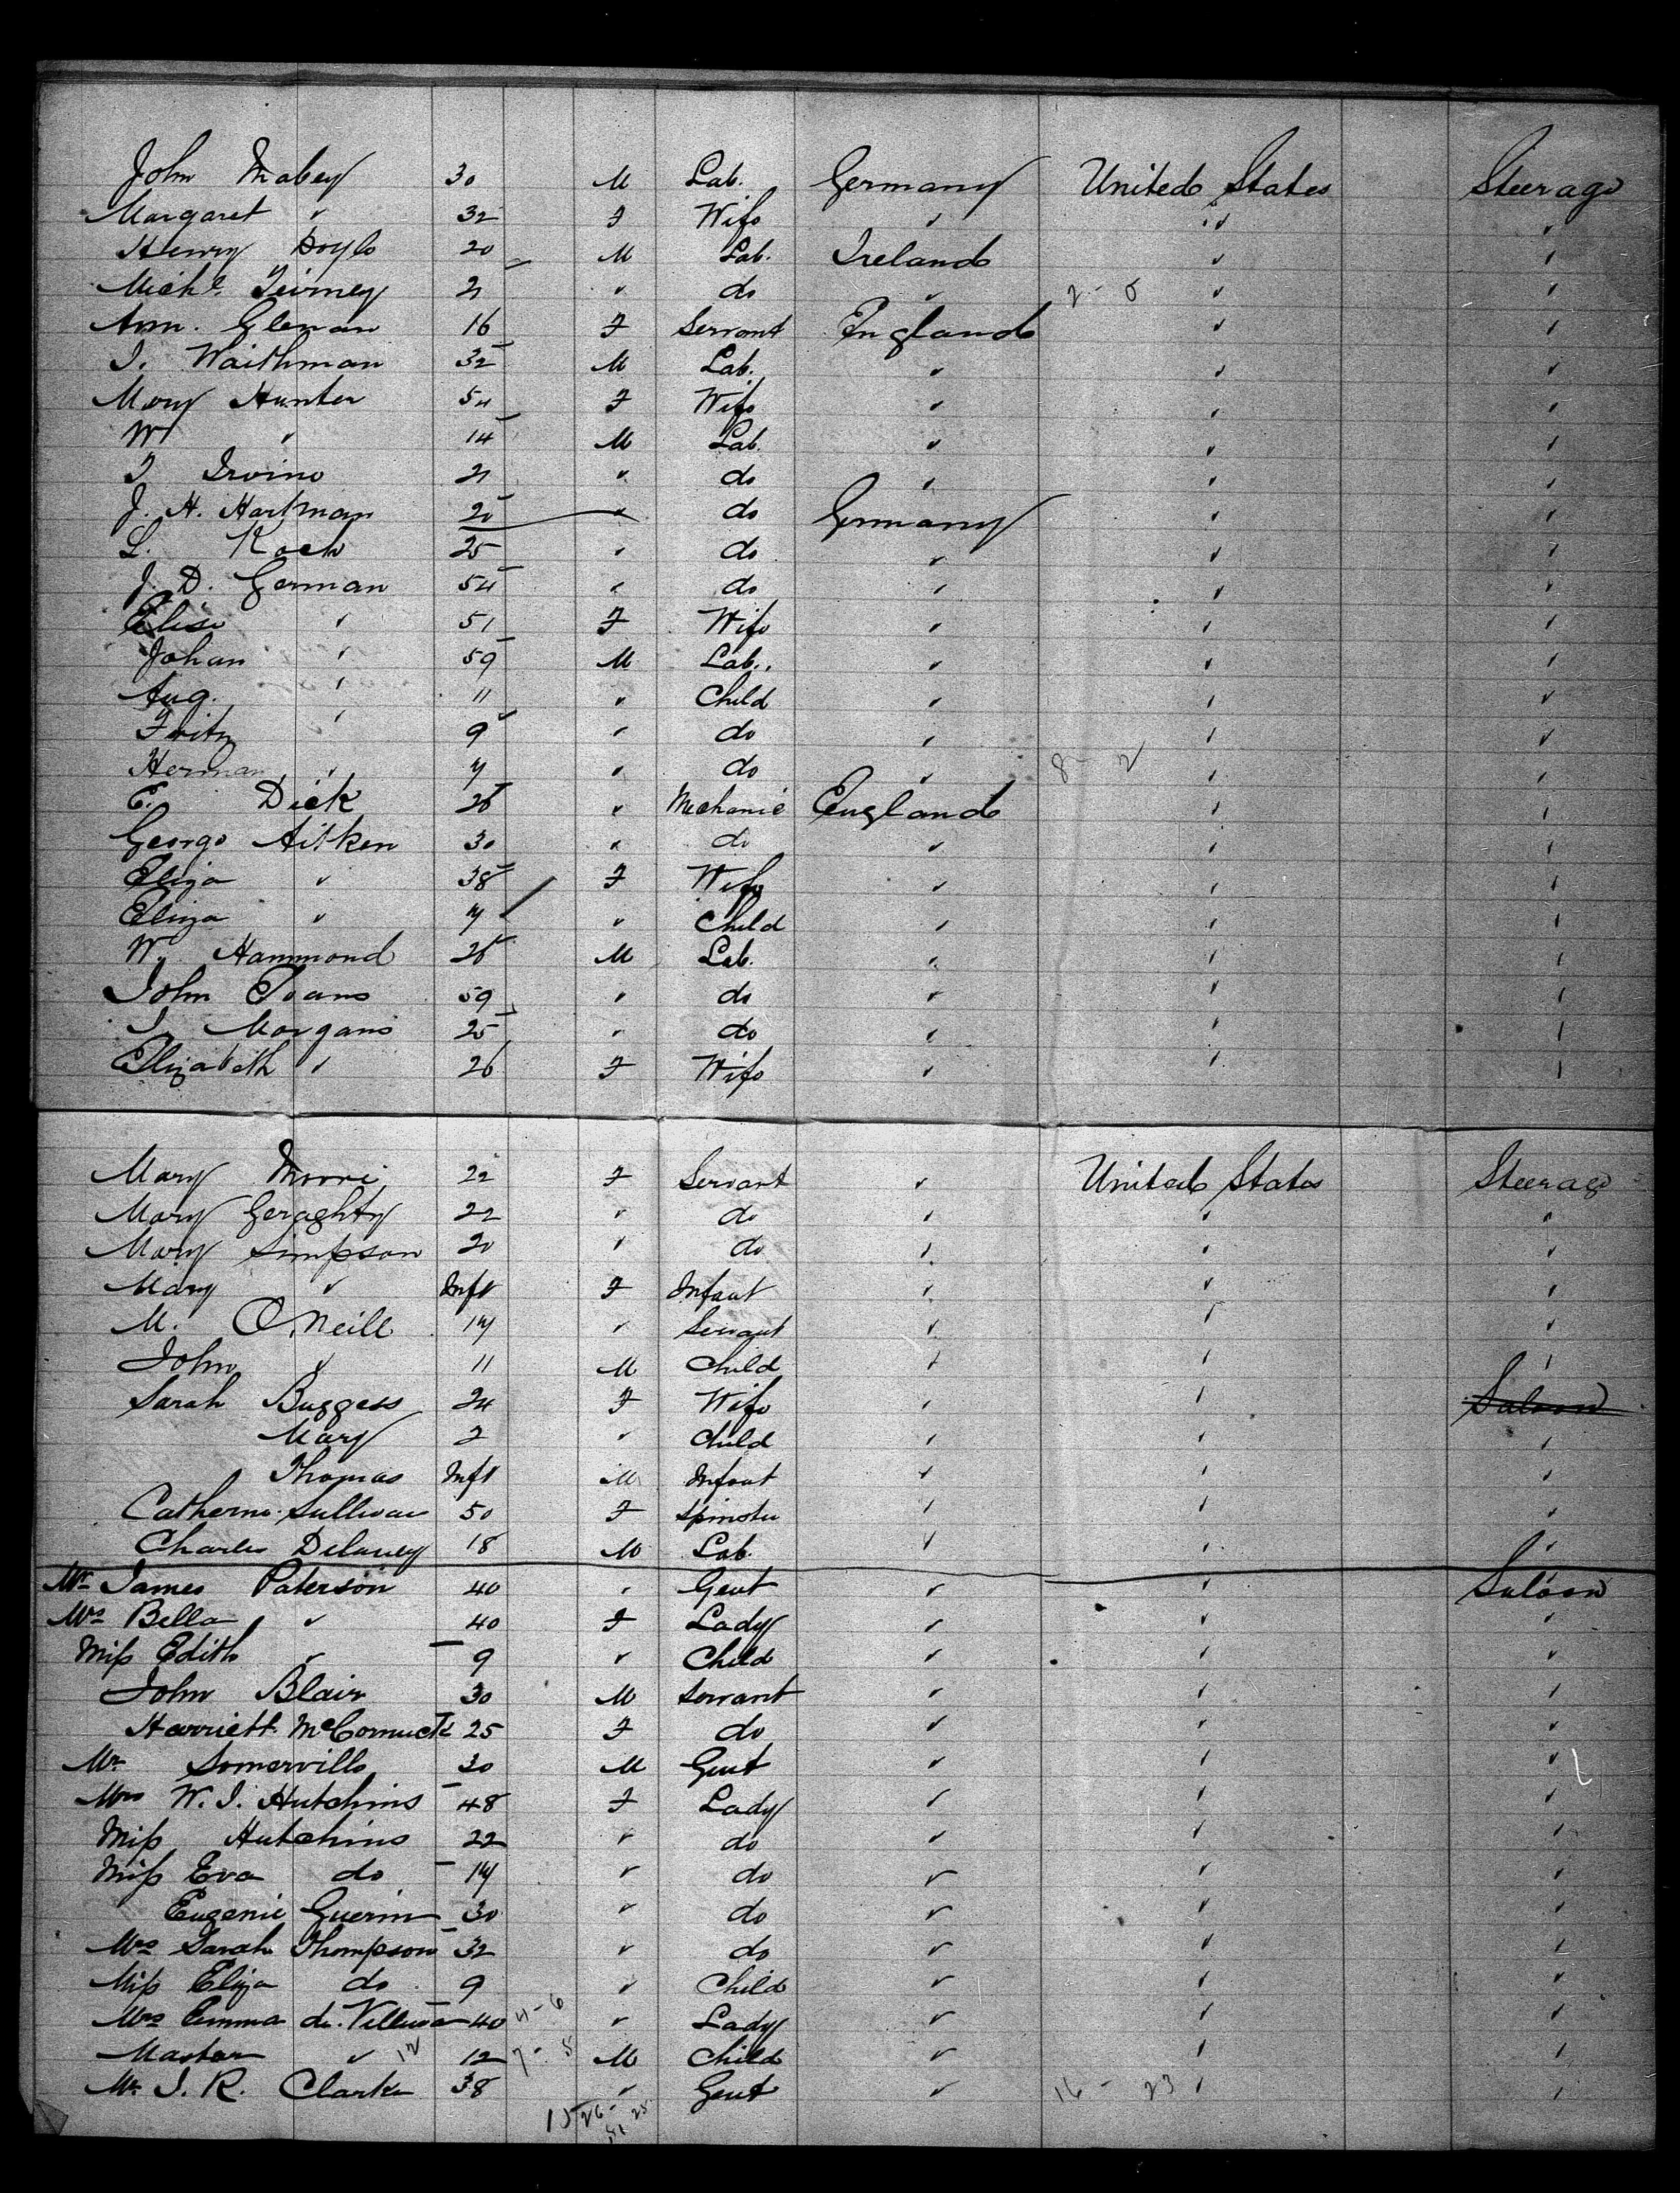 John Mabey 30 M Lab. Germany United States Steerage
Margaret " 32 F Wife " " "
Henry Doyle 20 M Lab. Ireland " "
Michl. Teirney 21 " do " 2 - 0 " "
Ann. Glenan 16 F Servant England " "
J. Waithman 32 M Lab. " " "
Mary Hunter 54 F Wife " " "
W " 14 M Lab. " " "
T Irvine 21 " do " " "
J. H. Hartman 20 " do Germany " "
L. Koch 25 " do " " "
J. D. German 54 " do " " "
Elise " 51 F Wife " " "
Johan " 59 M Lab. " " "
Aug. " 11 " Child " " "
Fritz " 9 " do " " "
Herman " 7 " do " 8 - 2 " "
E. Dick 26 " Mechanic England " "
George Aitken 30 " do " " "
Eliza " 38 F Wife " " "
Eliza " 7 " Child " " "
W. Hammond 26 M Lab. " " "
John Evans 59 " do " " "
J. Morgans 25 " do " " "
Elizabeth " 26 F Wife " " "
Mary 22 F Servant " United States Steerage
Mary Geraghty 22 " do " " "
Mary Simpson 20 " do " " "
Mary " Inft F Infant " " "
M. O'Neill 17 " Servant " " "
John " 11 M Child " " "
Sarah Buggess 24 F Wife " " Saloon
Mary 2 " Child " " "
Thomas Inft M Infant " " "
Catherine Sullivan 50 F Spinster " " "
Charles Delaney 18 M Lab. " " "
Mr James Paterson 40 " Gent " " Saloon
Mrs Bella " 40 F Lady " " "
Miss Edith " 9 " Child " " "
John Blair 30 M Servant " " "
Harriett McCormick 25 F do " " "
Mr Somerville 30 M Gent " " "
Mrs W. J. Hutchins 48 F Lady " " "
Miss Hutchins 22 " do " " "
Miss Eva do 17 " do " " "
Eugenie Guerin 30 " do " " "
Mrs Sarah Thompson 32 " do " " "
Miss Eliza do 9 " Child " " "
Mrs Emma de 40 4-6 " Lady " " "
Master " 12 12 7-5 M Child " " "
Mr J. R. Clarke 38 " Gent " 16 - 23 " "